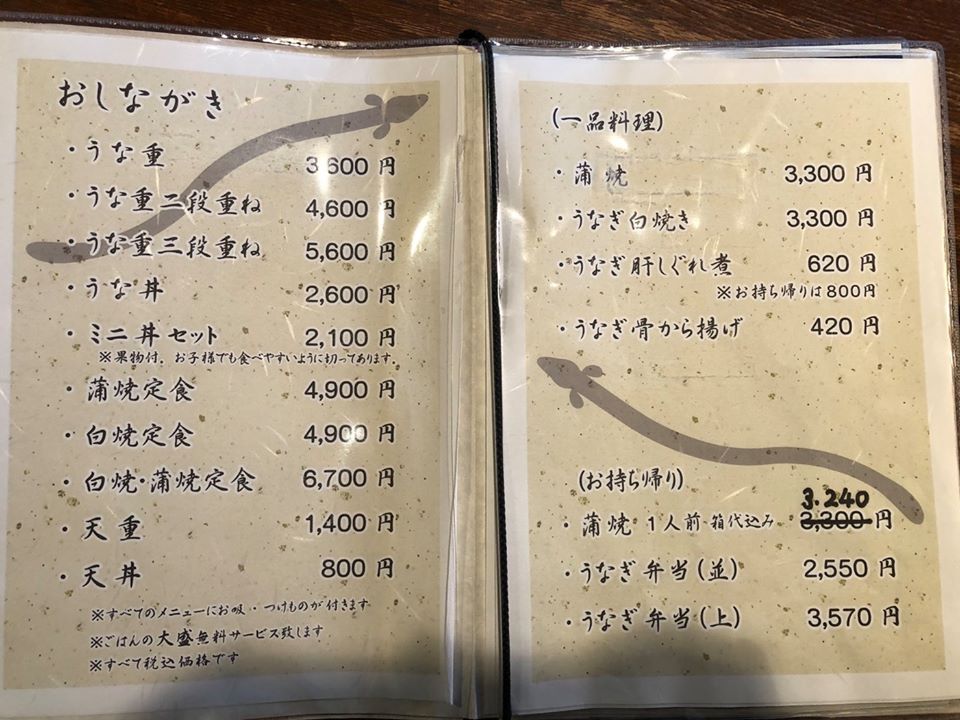 おしながき
・うな重 3,600 円
・うな重二段重ね 4,600 円
・うな重三段重ね 5,600 円
・うな丼 2,600 円
・ミニ丼セット 2,100 円
※果物付。お子様でも食べやすいように切ってあります。
・蒲焼定食 4,900 円
・白焼定食 4,900 円
・白焼・蒲焼定食 6,700 円
・天重 1,400 円
・天丼 800 円
※すべてのメニューにお吸・つけものが付きます
※ごはんの大盛無料サービス致します
※すべて税込価格です
(一品料理)
・蒲焼 3,300 円
・うなぎ白焼き 3,300 円
・うなぎ肝しぐれ煮 620 円
※お持ち帰りは800円
・うなぎ骨から揚げ 420 円
(お持ち帰り)
3.240
・蒲焼 1人前・箱代込み 3,300 円
・うなぎ弁当(並) 2,550 円
・うなぎ弁当(上) 3,570 円